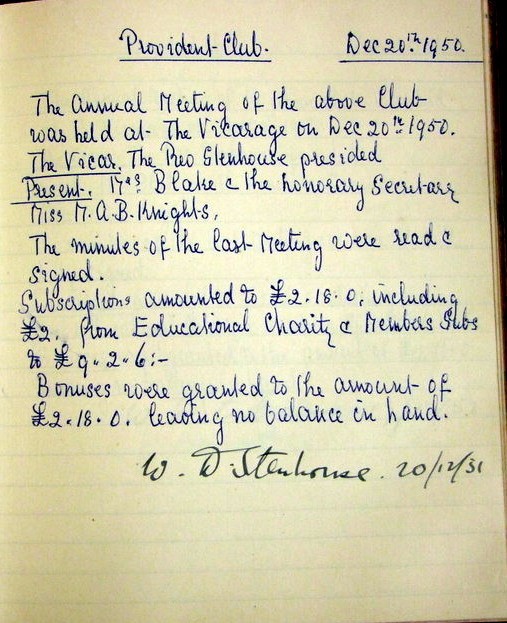 Provident Club. Dec 20th 1950.
The Annual Meeting of the above Club
was held at The Vicarage on Dec 20th 1950.
The Vicar. The Rev Stenhouse presided
Present. Mrs Blake & the honorary Secretary
Miss M. A. B. Knights,
The minutes of the last Meeting were read &
signed.
Subscriptions amounted to £2.18.0, including
£2. from Educational Charity & Members Subs
to £9.2.6:-
Bonuses were granted to the amount of
£2.18.0. leaving no balance in hand.
W. D. Stenhouse. 20/12/51